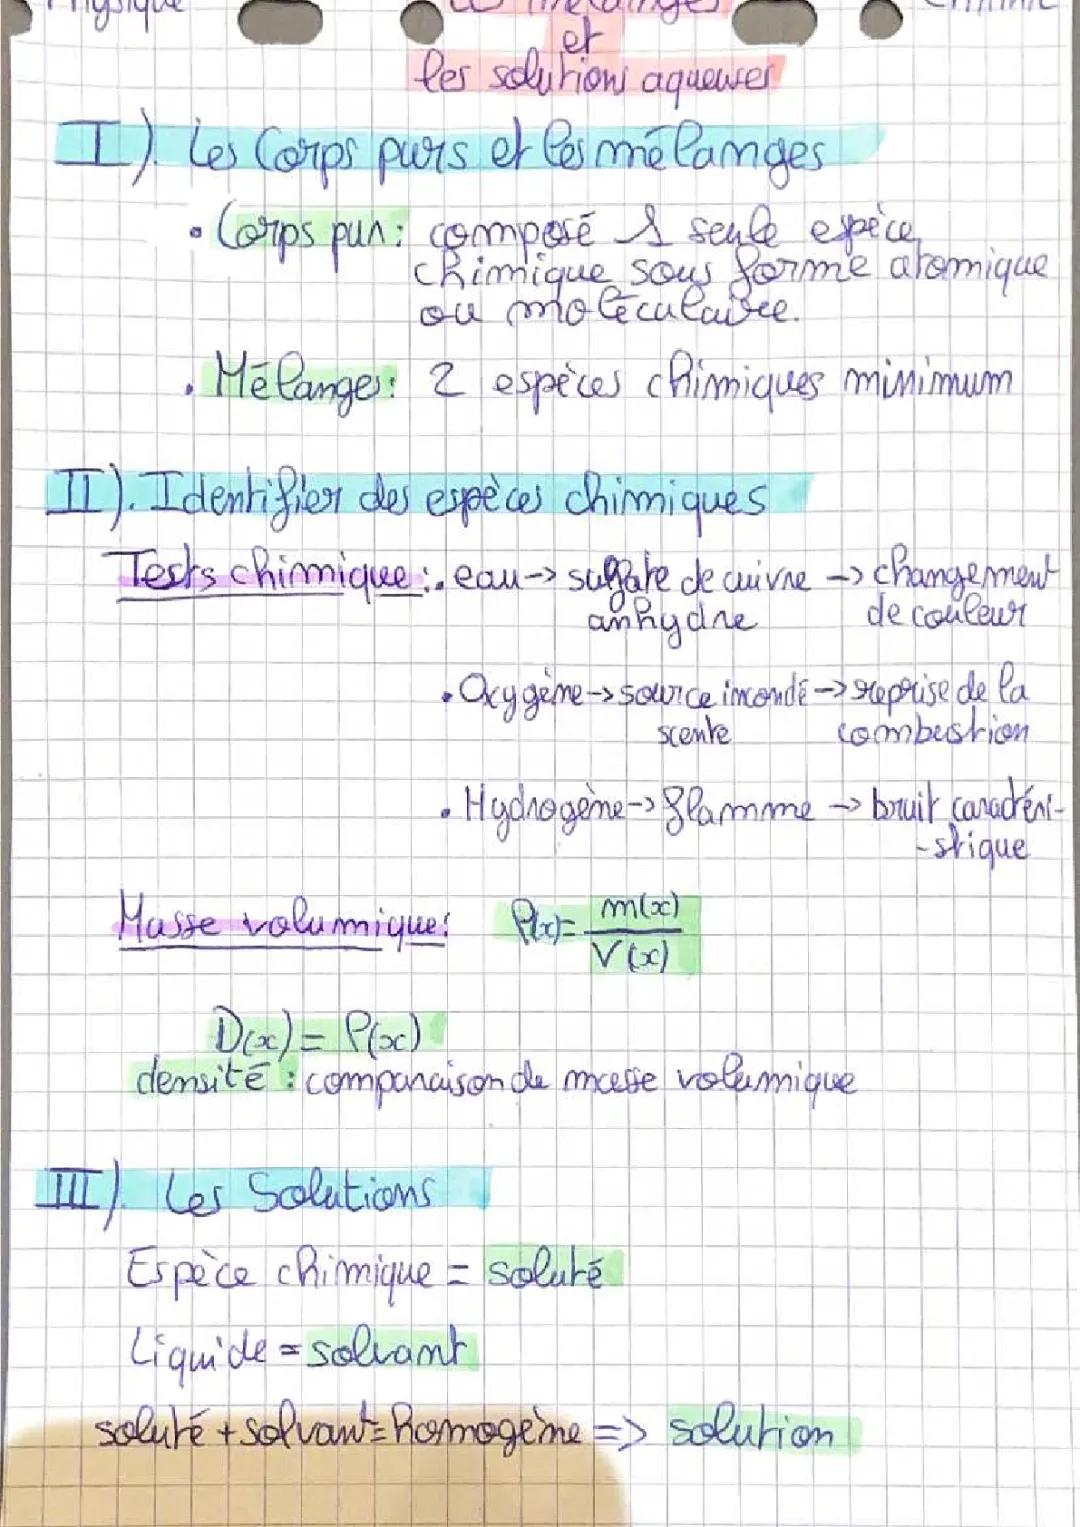 Physique
les mélanges
et
les solutions aqueuses
I). Les Corps purs et les mélanges
• Corps pur: composé 1 seule espèce
chimique sous forme atomique
ou moléculaire.
• Mélanges: 2 espèces chimiques minimum
II). Identifier des espèces chimiques
Tests chimique: • eau -> sulfate de cuivre -> changement
anhydre de couleur
• Oxygène -> source incondé -> reprise de la
scente combustion
• Hydrogène -> flamme -> bruit caractéri-
-stique
Masse volumique: ρ(x) = m(x)
V(x)
D(x) = ρ(x)
densité: comparaison de masse volumique
III). Les Solutions
Espèce chimique = soluté
Liquide = solvant
soluté + solvant = homogène => solution